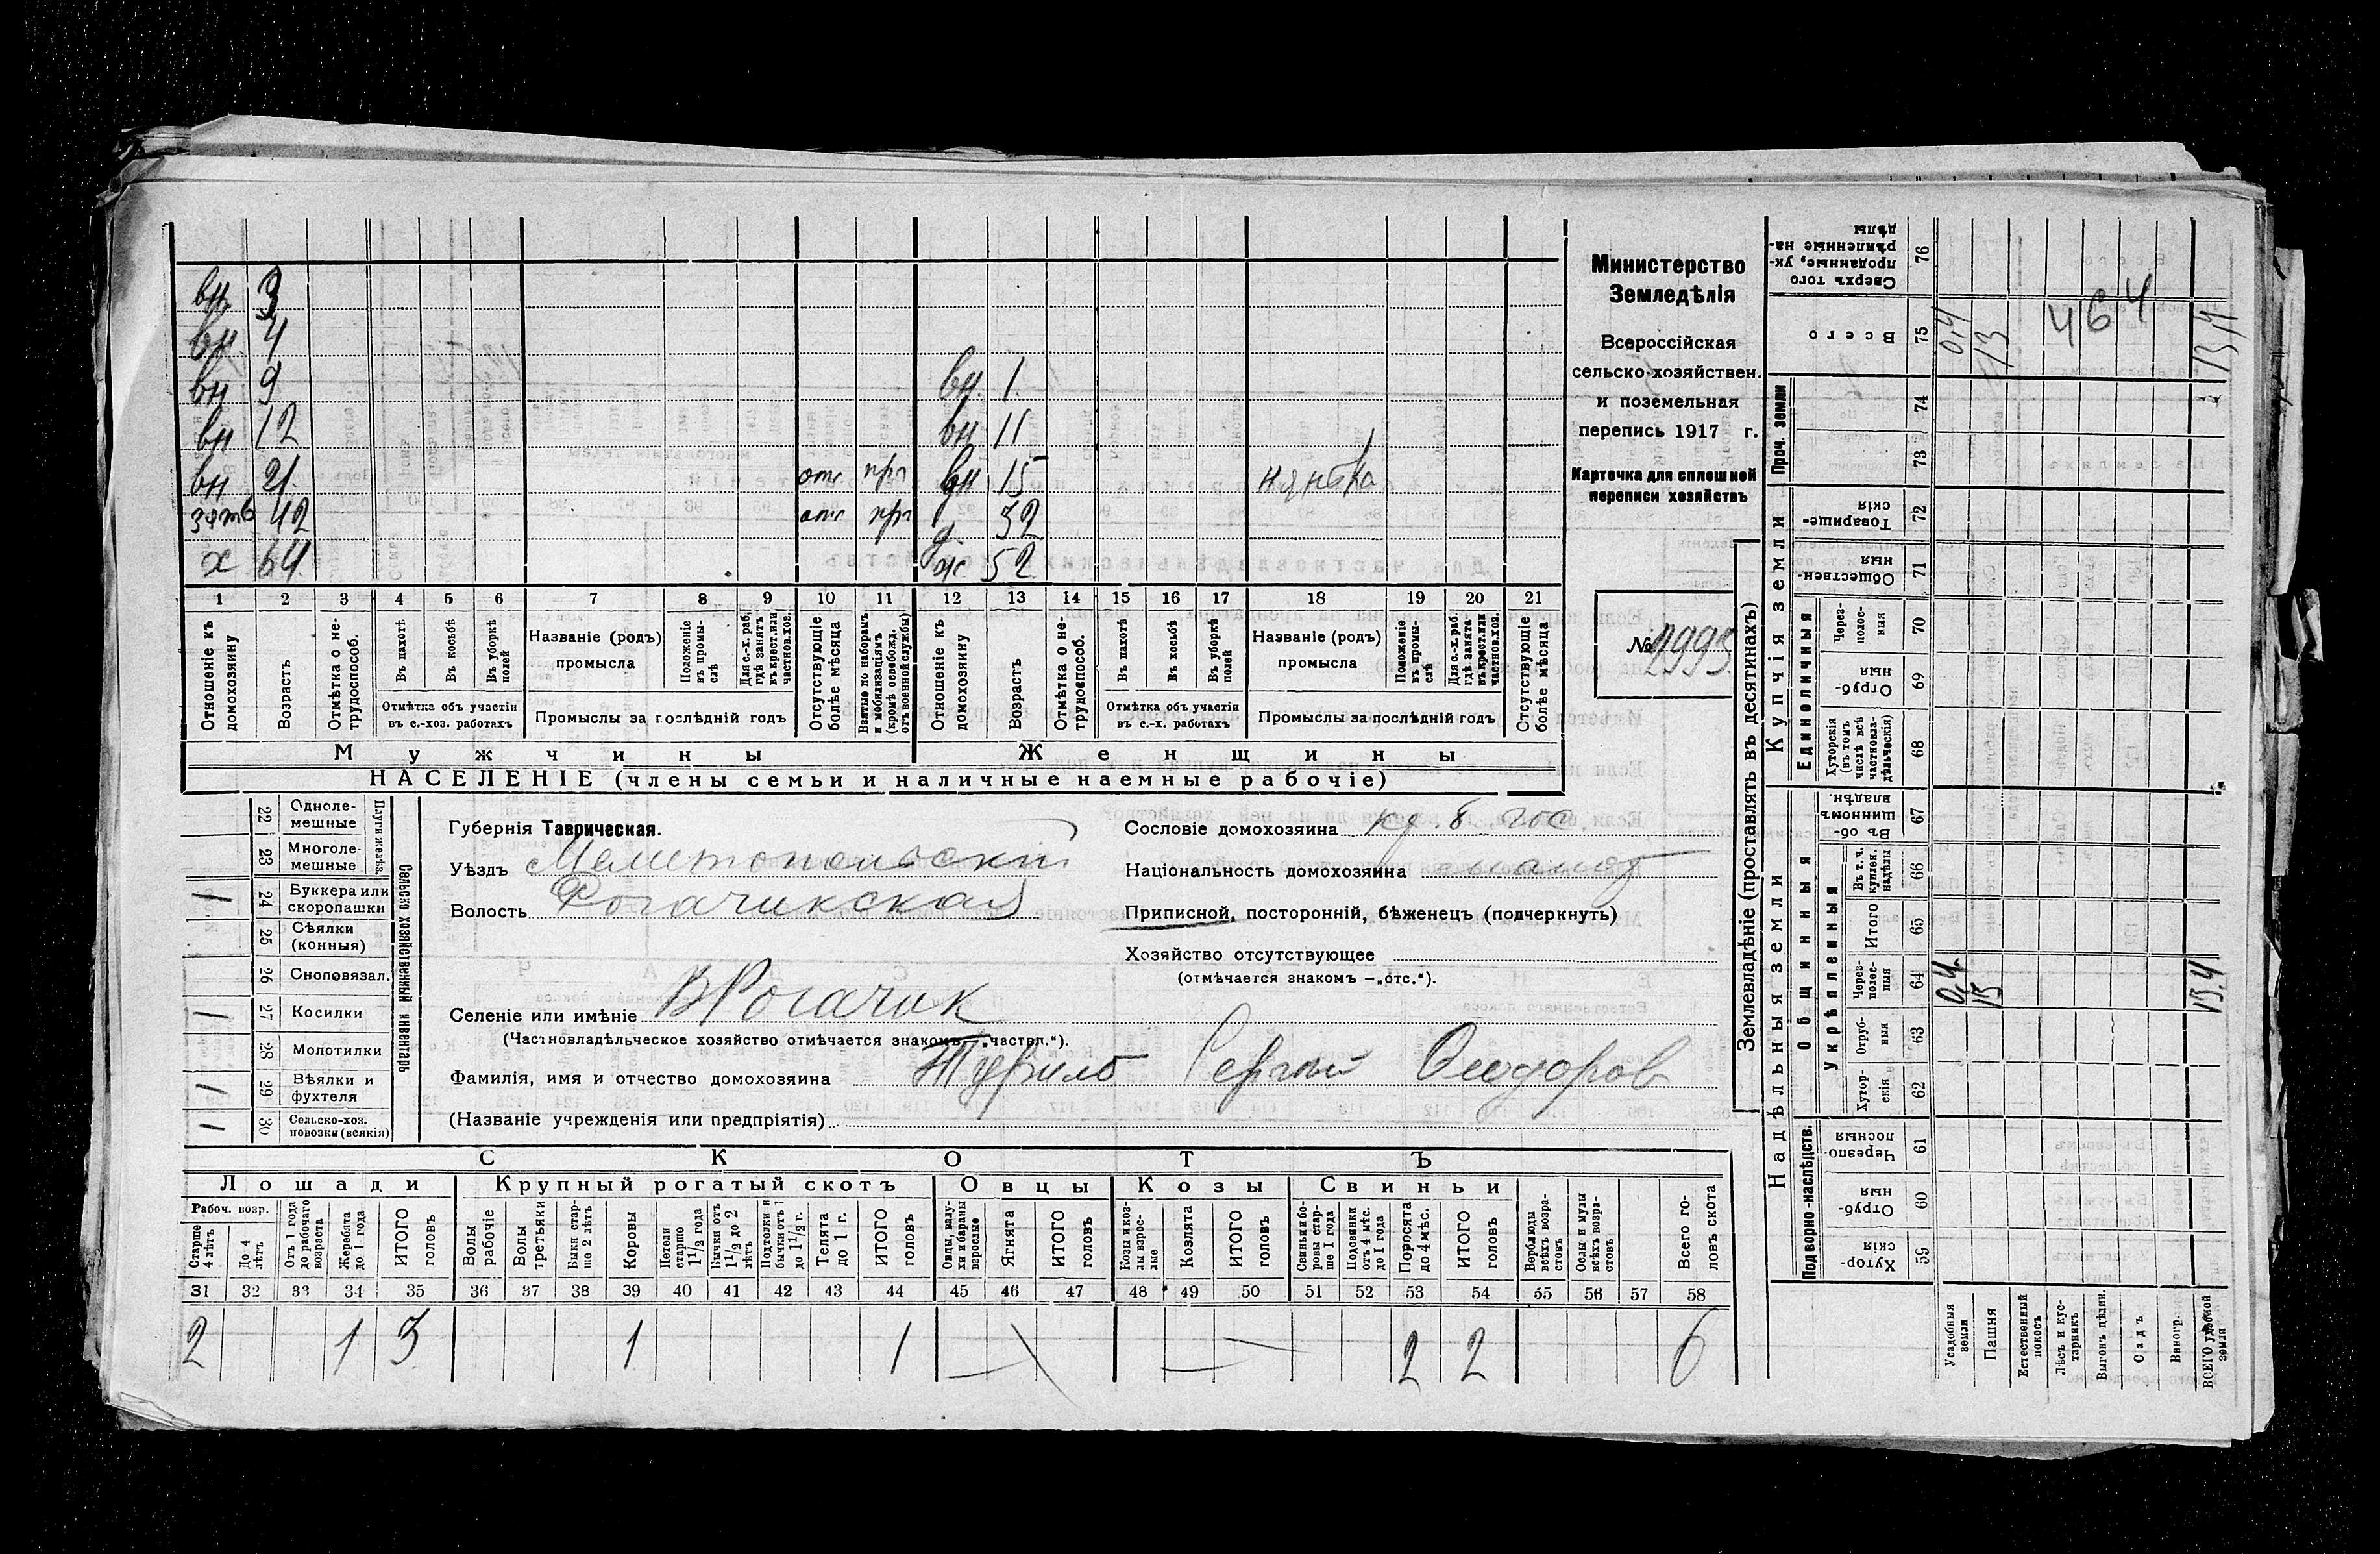 Министерство
Земледѣлія
Всероссійская
сельско-хозяйствен.
и поземельная
перепись 1917 г.
Карточка для сплошней
переписи хозяйствъ
№ 2993
вн. 3
вн. 4
вн 9
вн 12
вн 21. отс пр
зять 42 отс пр
х 64.
вн. 1.
вн 11
вн 15 нянька
д. 32
ж. 52
1 2 3 4 5 6 7 8 9 10 11 12 13 14 15 16 17 18 19 20 21
Отношеніе къ домохозяину
Возрастъ
Отмѣтка о не-трудоспособ.
Въ пахотѣ
Въ косьбѣ
Въ уборкѣ полей
Отмѣтка объ участіи
въ с.-хоз. работахъ
Названіе (родъ)
промысла
Положеніе въ промы-слѣ
Для с.-х. раб. гдѣ занятъ въ крест. или частнов. хоз.
Промыслы за послѣдній годъ
Отсутствующіе болѣе мѣсяца
Взятые по наборамъ и мобилизаціямъ (кромѣ освобожд. отъ военной службы)
Отношеніе къ домохозяину
Возрастъ
Отмѣтка о не-трудоспособ.
Въ пахотѣ
Въ косьбѣ
Въ уборкѣ полей
Отмѣтка объ участіи
въ с.-х. работахъ
Названіе (родъ)
промысла
Положеніе въ промы-слѣ
Для с.-х. раб. гдѣ занята въ крест. или частнов. хоз.
Промыслы за послѣдній годъ
Отсутствующіе болѣе мѣсяца
Мужчины Женщины
НАСЕЛЕНІЕ (члены семьи и наличные наемные рабочіе)
Сельско хозяйственный инвентарь
Плуги желѣз.
22 Одноле-мешные
23 Многоле-мешные
24 Буккера или скоропашки 1
25 Сѣялки (конныя)
26 Сноповязал.
27 Косилки 1
28 Молотилки
29 Вѣялки и фухтеля 1
30 Сельско-хоз. повозки (всякія) 1
Губернія Таврическая.
Уѣздъ Мелитопольскій
Волость Рогачикская
Селеніе или имѣніе В Рогачик
(Частновладѣльческое хозяйство отмѣчается знакомъ „частвл.“).
Фамилія, имя и отчество домохозяина Турило Сергѣй Ѳеодоров
(Названіе учрежденія или предпріятія)
Сословіе домохозяина кр. б. гос
Національность домохозяина
Приписной, посторонній, бѣженецъ (подчеркнуть)
Хозяйство отсутствующее
(отмѣчается знакомъ —„отс.“).
СКОТЪ
Лошади Крупный рогатый скотъ Овцы Козы Свиньи
Рабоч. возр.
Старше 4 лѣтъ
До 4 лѣтъ
Отъ 1 года до рабочаго возраста
Жеребята до 1 года
ИТОГО головъ
Волы рабочіе
Волы третьяки
Быки стар-ше 2 лѣтъ
Коровы
Нетели старше 1 1/2 года
Бычки отъ 1 1/2 до 2 лѣтъ
Подтелки и бычки отъ 1 до 1 1/2 г.
Телята до 1 г.
ИТОГО головъ
Овцы, валу-хи и бараны взрослые
Ягнята
ИТОГО головъ
Козы и коз-лы взрос-лые
Козлята
ИТОГО головъ
Свиньи и бо-ровы стар-ше 1 года
Подсвинки отъ 4 мѣс. до 1 года
Поросята до 4 мѣс.
ИТОГО головъ
Верблюды всѣхъ возра-стовъ
Ослы и мулы всѣхъ возра-стовъ
Всего го-ловъ скота
31 32 33 34 35 36 37 38 39 40 41 42 43 44 45 46 47 48 49 50 51 52 53 54 55 56 57 58
2 1 3 1 1 — — 2 2 6
Землевладѣніе (проставлять въ десятинахъ)
Надѣльныя земли
Купчія земли
Проч. земли
Подворно-наслѣдств.
Общинныя
Укрѣпленныя
Единоличныя
Хутор-скія 59
Отруб-ныя 60
Черезпо-лосныя 61
Хутор-скія 62
Отруб-ныя 63
Через-полос-ныя 64
Итого 65
Въ т. ч. куплен. надѣлы 66
Въ об-щинномъ владѣн. 67
Хуторскія (въ томъ числѣ всѣ частновла-дѣльческія) 68
Отруб-ныя 69
Через-полос-ныя 70
Обществен-ныя 71
Товарище-скія 72
73
74
Всего 75
Сверхъ того проданные, ук-рѣпленные на-дѣлы 76
Усадебныя земли
Пашня
Естественный покосъ
Лѣсъ и кус-тарникъ
Выгонъ цѣлин.
Садъ
Виногр.
ВСЕГО удобной земли
0,4 13 13.4
0,4 13 464 13,4